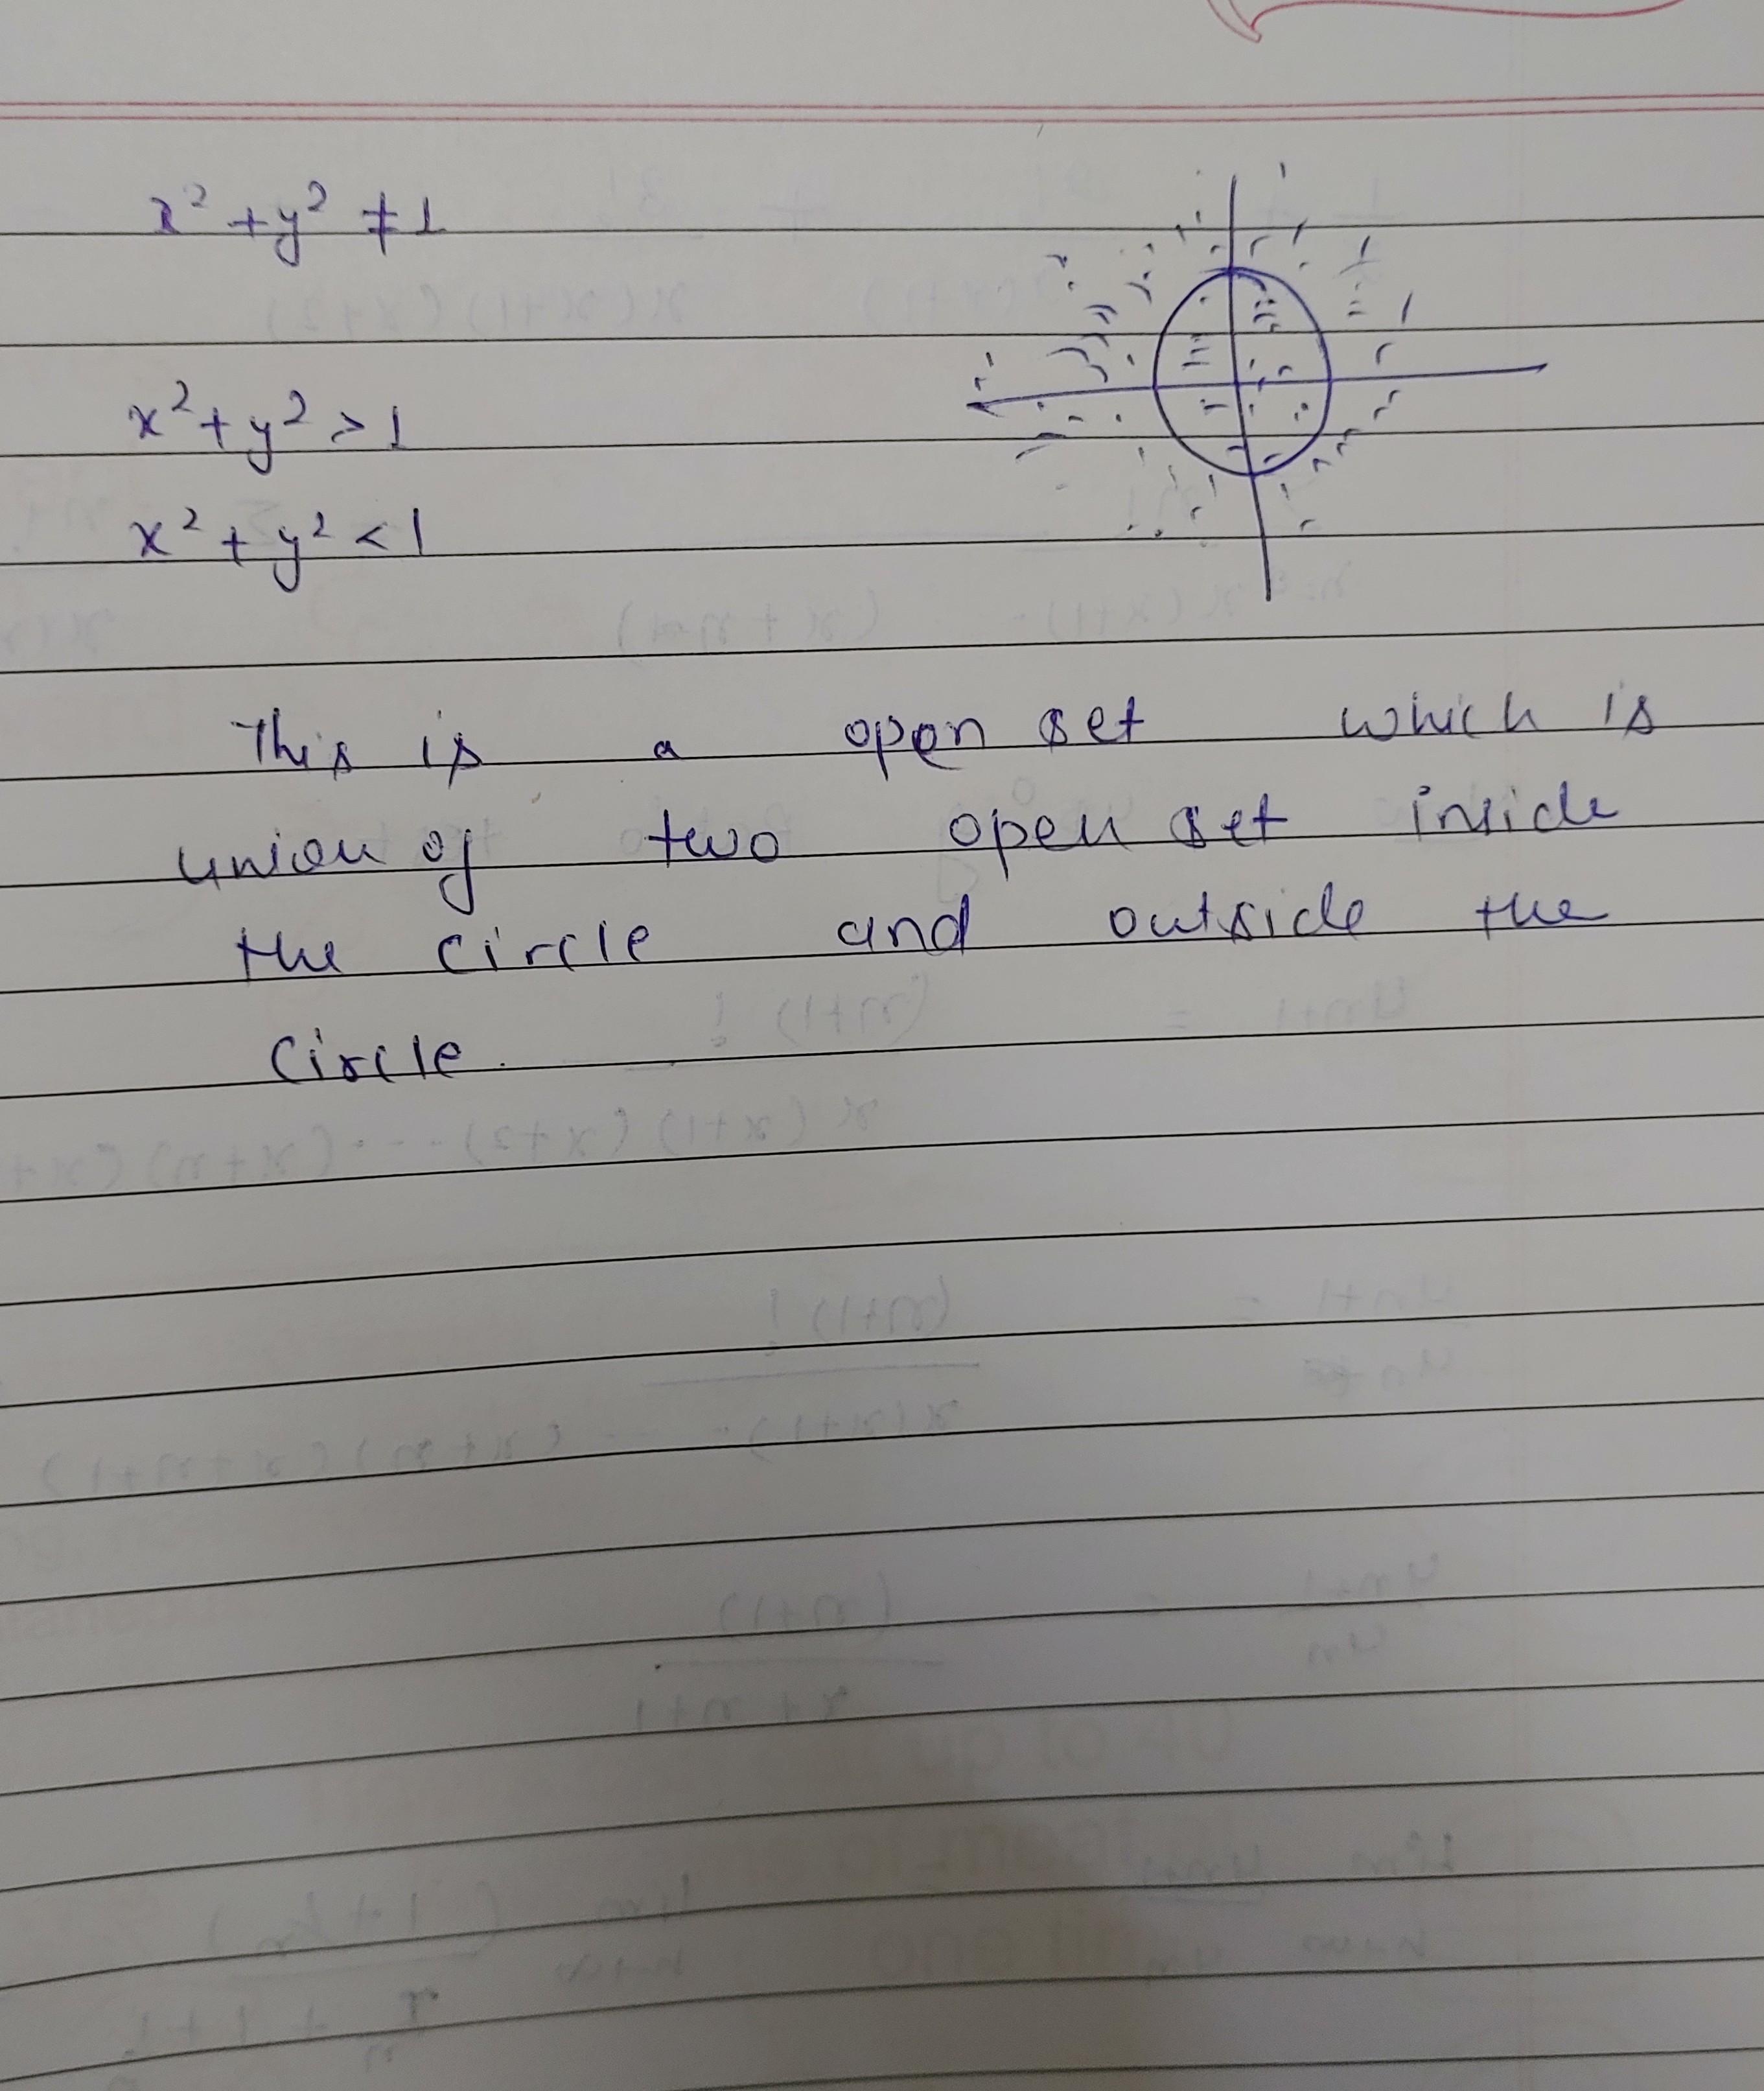 x² + y² ≠ 1
x² + y² > 1
x² + y² < 1
This is a open set which is
union of two open set inside
the circle and outside the
circle.